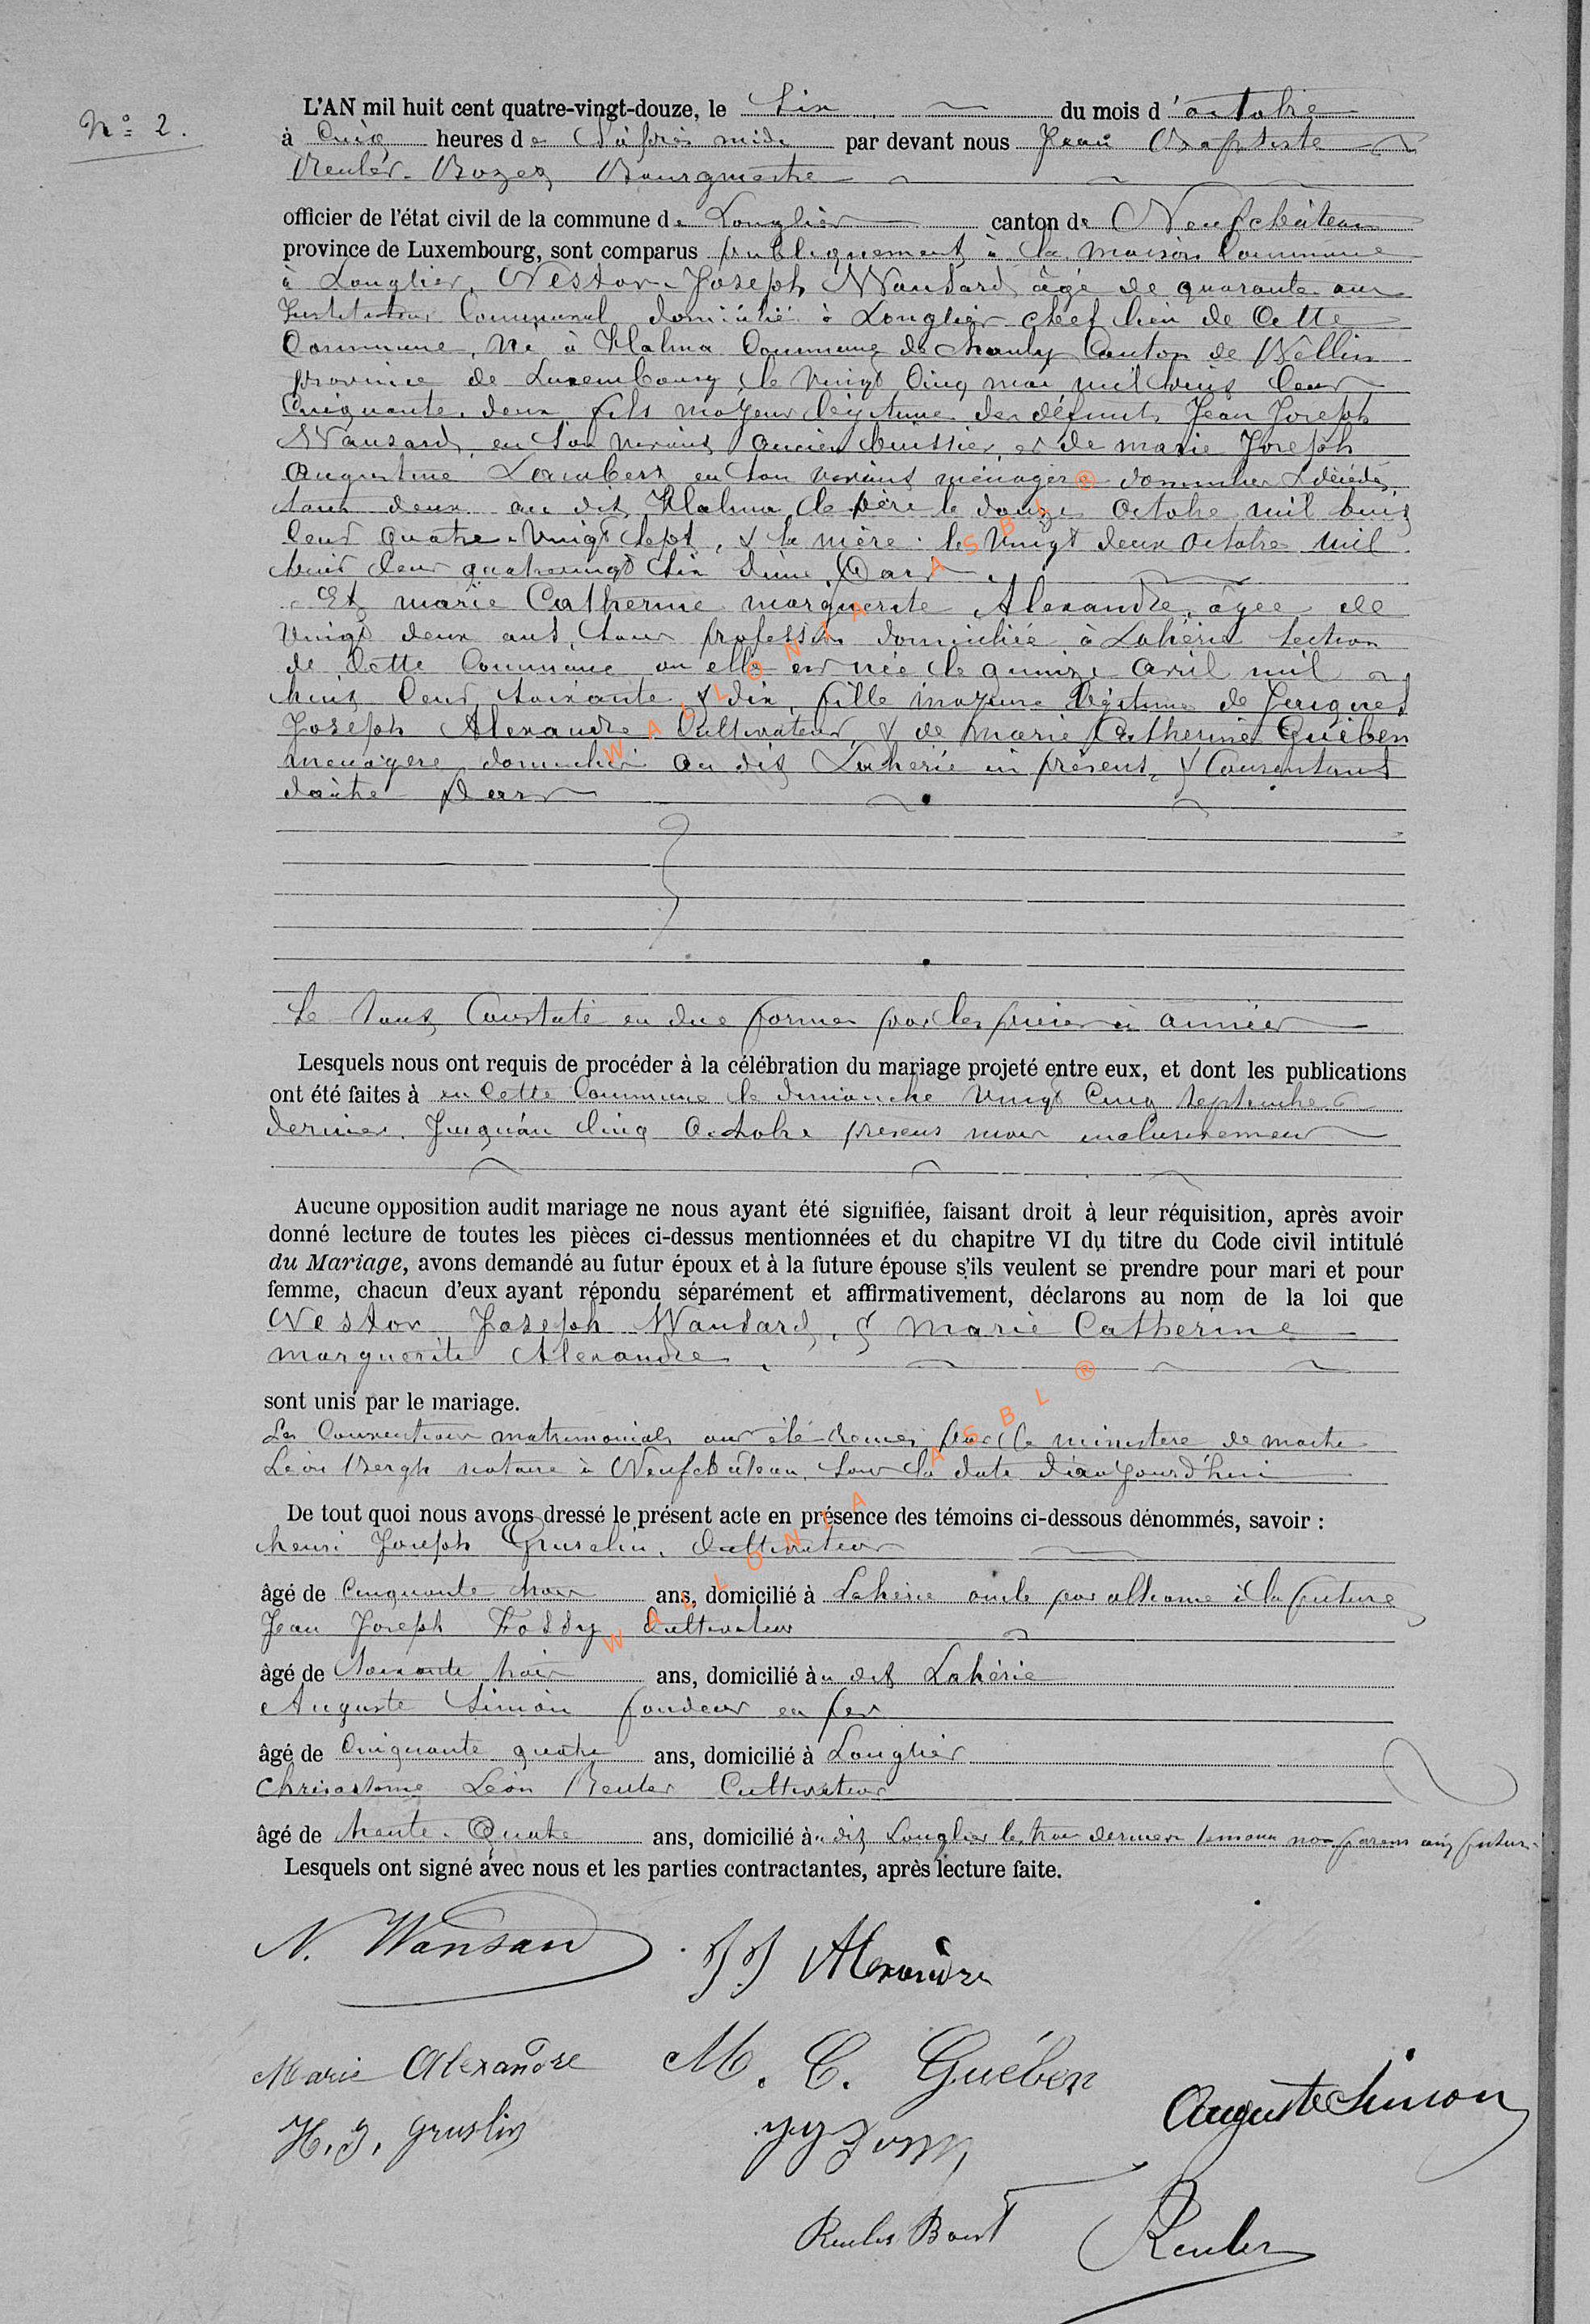 N° 2.
L'AN mil huit cent quatre-vingt-douze, le Six du mois d'octobre
à Cinq heures de L'après midi par devant nous Jean Baptiste
Reuler Bozez Bourgmestre
officier de l'état civil de la commune de Longlier canton de Neufchâteau
province de Luxembourg, sont comparus publiquement à la maison Commune
à Longlier, Nestor Joseph Wansard âgé de quarante ans
Instituteur Communal domicilié à Longlier chef lieu de Cette
Commune, Né à Halma Commune de Chanly Canton de Wellin
province de Luxembourg, le Vingt Cinq mai mil huit Cent
Cinquante deux fils majeur légitime des défunts Jean Joseph
Wansard en Son vivant ancien huissier, et de marie Joseph
Augustine Lambert en Son vivant ménagère domiciliés & décédés
tous deux au dit Halma, le père le douze Octobre mil huit
Cent quatre Vingt Sept, & la mère le Vingt deux Octobre mil
huit Cent quatrevingt Six d'une Part
Et marie Catherine marguerite Alexandre, âgée de
Vingt deux ans, Sans profession domiciliée à Lahérie Section
de Cette Commune où elle est née le quinze Avril mil
huit Cent Soixante & dix, fille majeure légitime de Jacques
Joseph Alexandre Cultivateur, & de Marie Catherine Guében
ménagère, domiciliés au dit Lahérie ici présents, & Consentants
d'autre Part
Le tout Constaté en due forme par les pièces ci annexées
Lesquels nous ont requis de procéder à la célébration du mariage projeté entre eux, et dont les publications
ont été faites à en Cette Commune le dimanche Vingt Cinq Septembre
dernier Jusqu'au Cinq Octobre présent mois inclusivement
Aucune opposition audit mariage ne nous ayant été signifiée, faisant droit à leur réquisition, après avoir
donné lecture de toutes les pièces ci-dessus mentionnées et du chapitre VI du titre du Code civil intitulé
du Mariage, avons demandé au futur époux et à la future épouse s'ils veulent se prendre pour mari et pour
femme, chacun d'eux ayant répondu séparément et affirmativement, déclarons au nom de la loi que
Nestor Joseph Wansard, & Marie Catherine
marguerite Alexandre
sont unis par le mariage.
Les Conventions matrimoniales ont été par le ministère de maitre
Léon Bergh notaire à Neufchâteau, Sous la date d'aujourd'hui
De tout quoi nous avons dressé le présent acte en présence des témoins ci-dessous dénommés, savoir :
henri Joseph Gruslin, Cultivateur
âgé de Cinquante trois ans, domicilié à Lahérie oncle par alliance à la future
Jean Joseph Fossy Cultivateur
âgé de Soixante trois ans, domicilié au dit Lahérie
Auguste Simon fondeur en fer
âgé de Cinquante quatre ans, domicilié à Longlier
Chrisostome Léon Reuler Cultivateur
âgé de trente Quatre ans, domicilié au dit Longlier les trois derniers témoins non parents aux futurs
Lesquels ont signé avec nous et les parties contractantes, après lecture faite.
N. Wansard J J Alexandre
Marie Alexandre M. C. Guében
Auguste Simon
H. J. Gruslin J J Fossy
Reuler Reuler
WALLONIA ASBL ®
WALLONIA ASBL ®